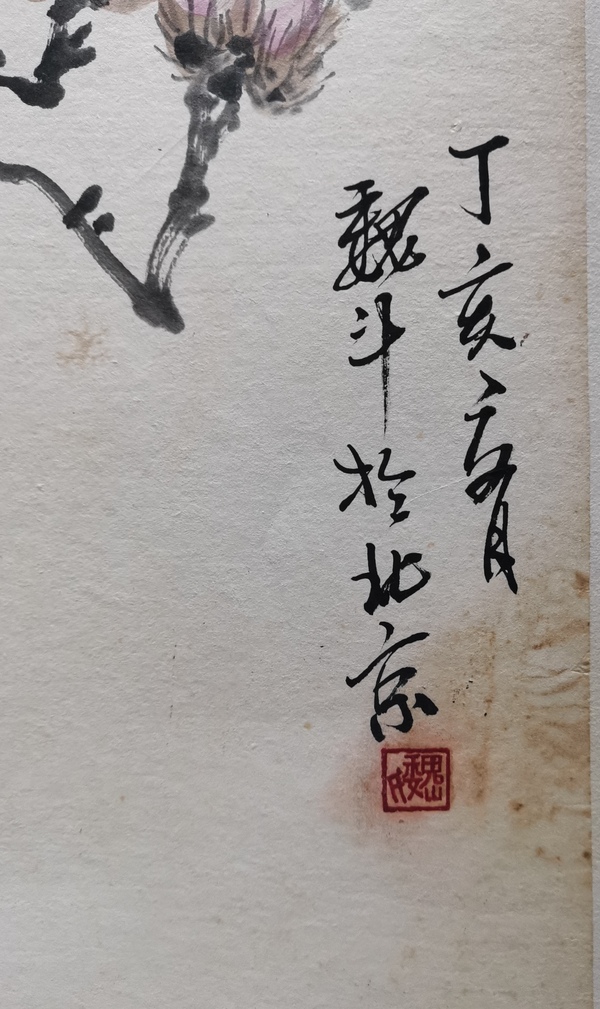 丁亥夏月
魏斗於北京